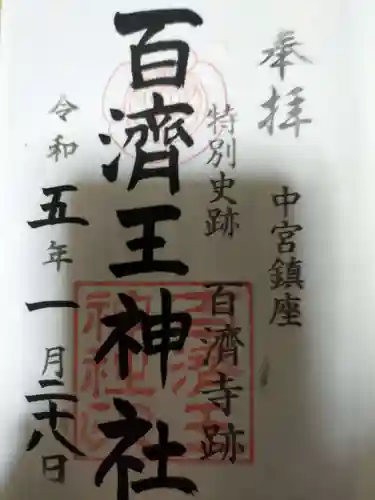 奉拝
中宮鎮座
特別史跡 百濟寺跡
百濟王神社
令和五年一月二十八日